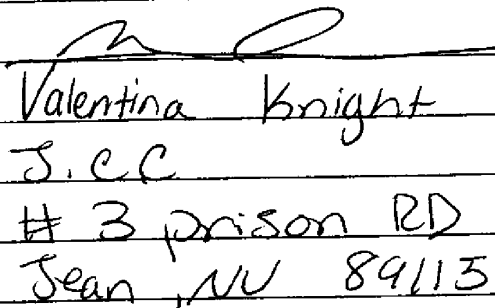 Valentina Knight
J.CC
# 3 prison RD
Jean, NV 89115